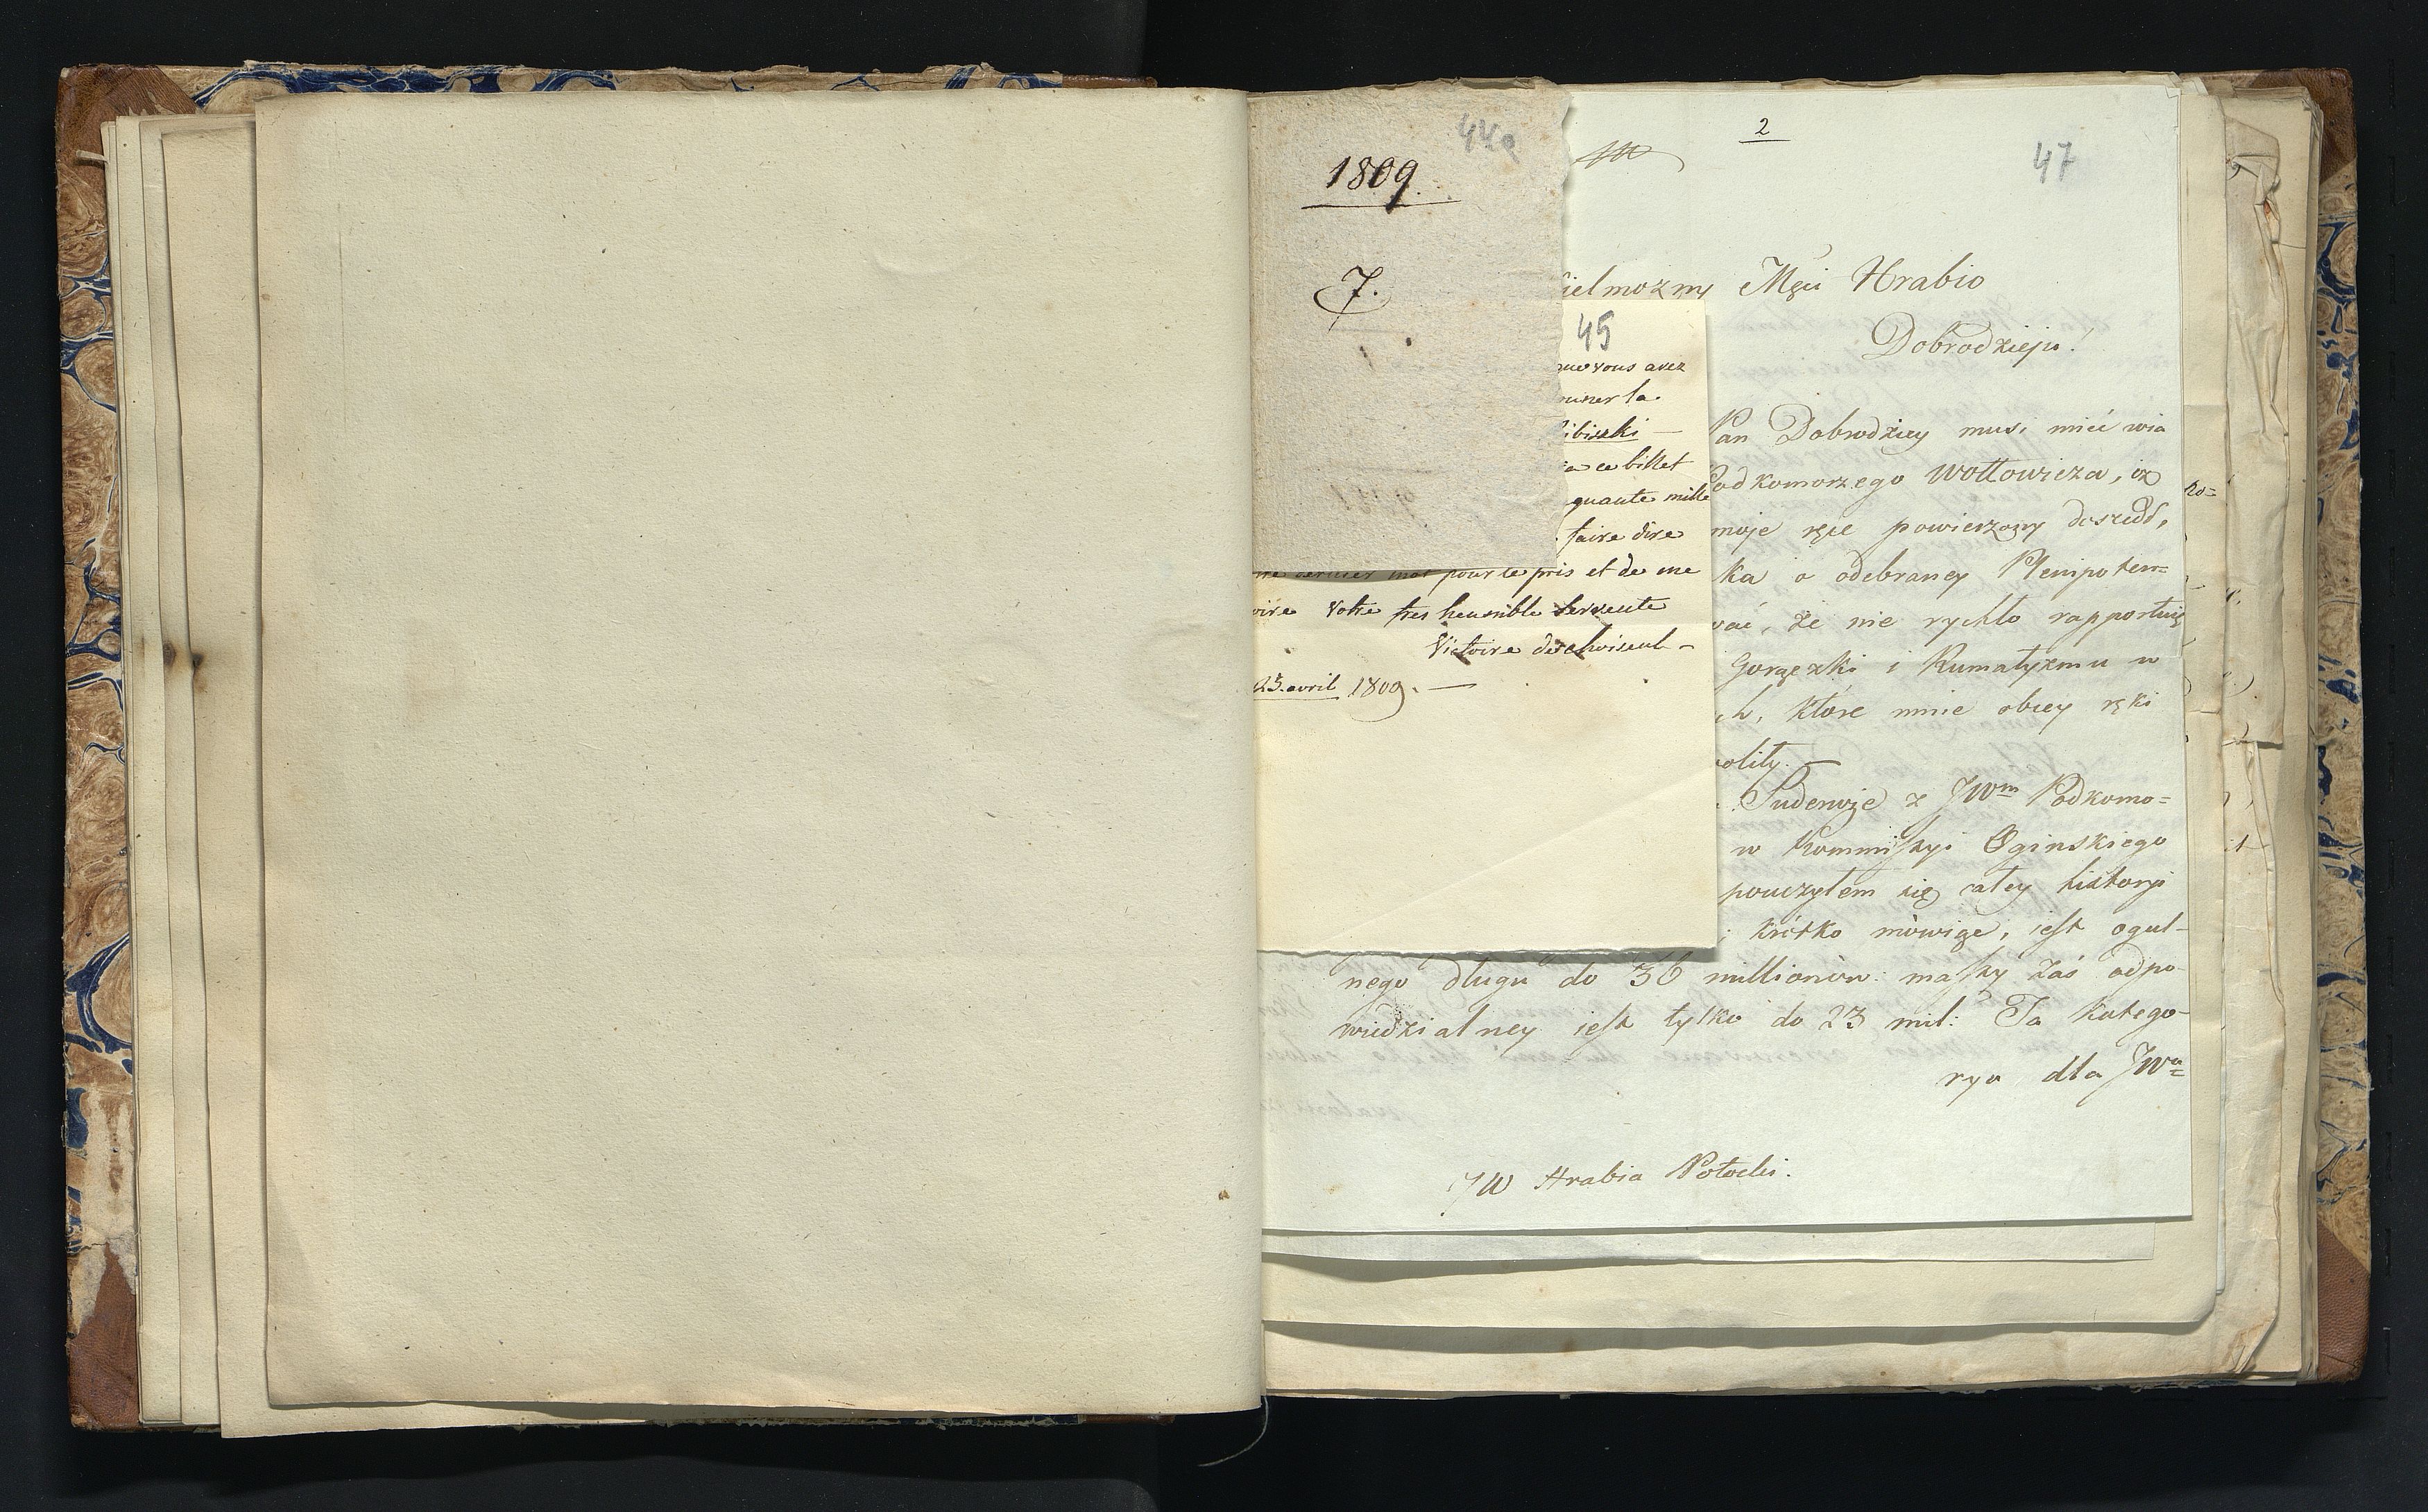 44a
1809.
7.
45
que vous avez
ce billet
quante mille
faire dire
pour le prix et de me
Votre tres heumble Servente
Victoire de choiseul -
23. avril 1809. —
2
47
ielmożny Mści Hrabio
Dobrodzieju!
Pan Dobrodziey musi mieć wia
Podkomorzego Wołłowicza, iż
moje ręce powierzony doszedł,
ka o odebraney Plenipoten=
wać, że nie rychło rapportuię
Gorączki i Rumatyzmu w
ch, które mnie obiey ręki
z JWm Podkomo=
w Kommissyi Oginskiego
pouczyłem się całey historyi
krótko mówiąc, iest ogul-
nego długu do 36 millionów: massy zaś odpo-
wiedzialney iest tylko do 23 mil: Ta katego-
rya dla JWa=
JW Hrabia Potocki.